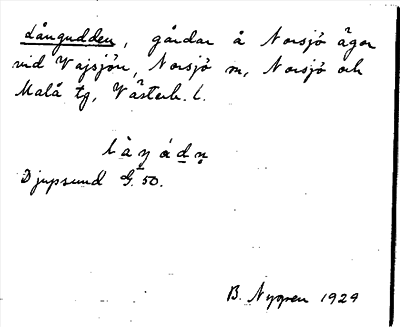 Långudden, gårdar å Norsjö ägor
vid Vajsjön, Norsjö sn, Norsjö och
Malå tg, Västerb. l.
Djupsund G. 50.
B. Nygren 1929